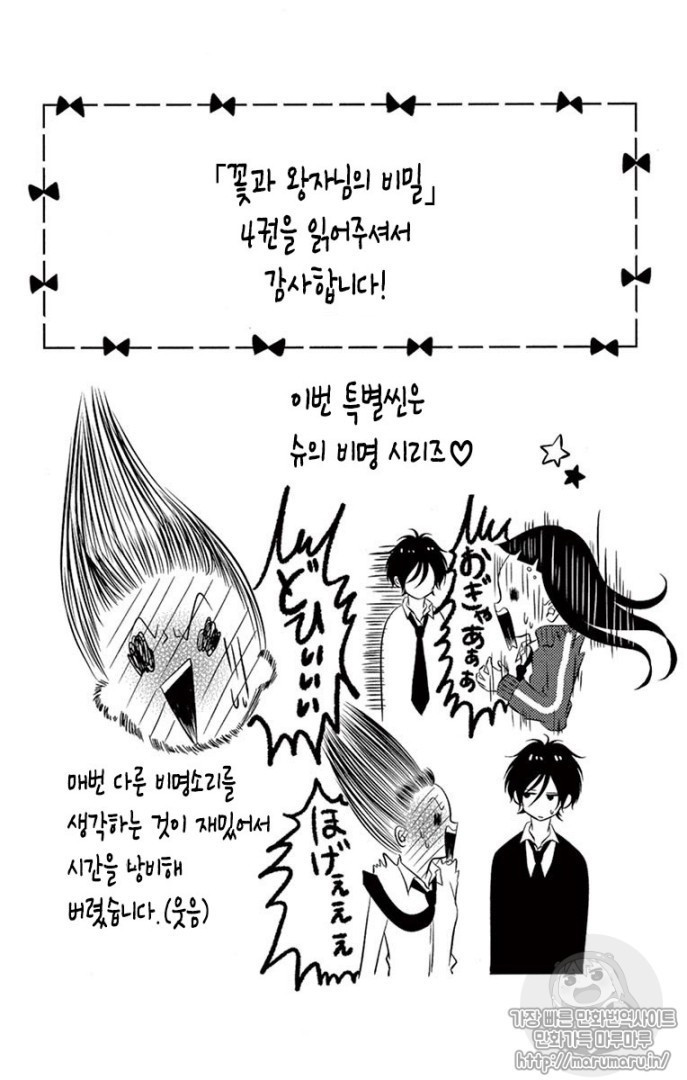 「꽃과 왕자님의 비밀」
4권을 읽어주셔서
감사합니다!
이번 특별씬은
슈의 비명 시리즈♡
どひぃぃぃぃ
おぎゃあぁぁぁ
매번 다른 비명소리를
생각하는 것이 재밌어서
시간을 낭비해
버렸습니다.(웃음)
ほげぇぇぇ
가장 빠른 만화번역사이트
만화가득 마루마루
http://marumaru.in/